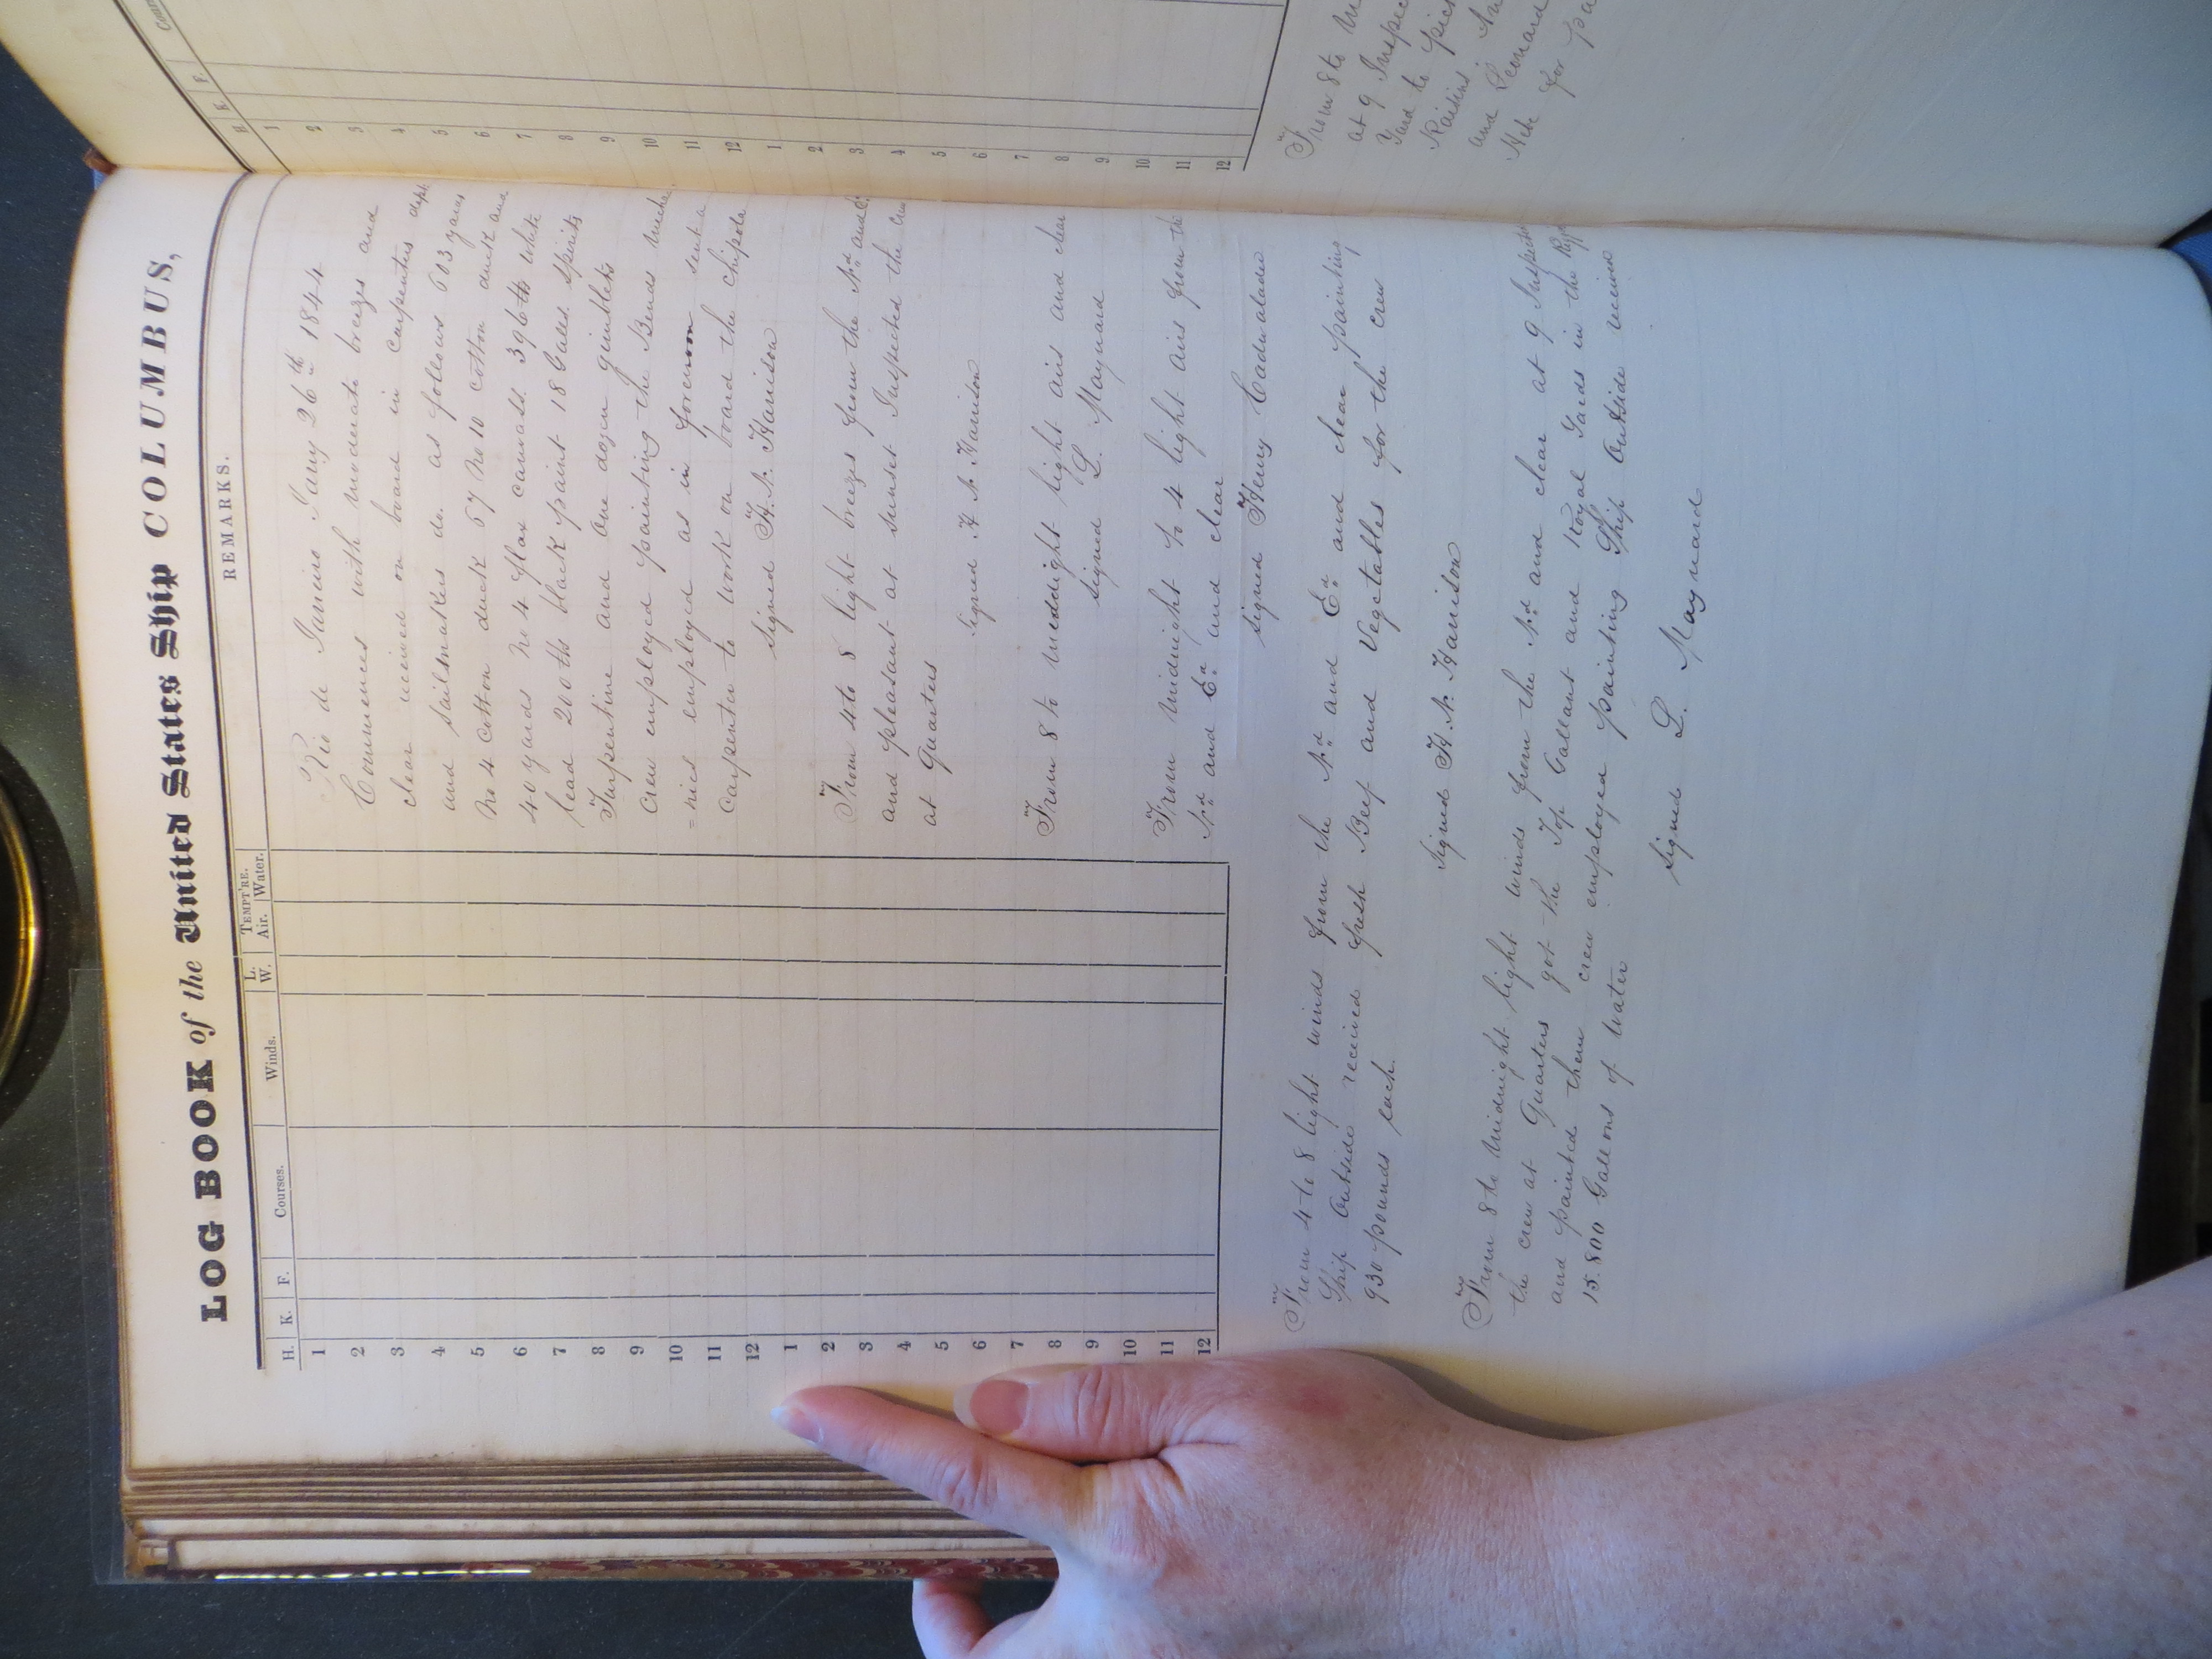 LOG BOOK of the United States Ship COLUMBUS,
H. K. F. Courses. Winds. L. W. TEMPT'RE. Air. Water. REMARKS.
1
2
3
4
5
6
7
8
9
10
11
12
1
2
3
4
5
6
7
8
9
10
11
12
Rio de Janeiro Jany 26th 1844
Commences with moderate breezes and
clear received on board in carpenters dept
and sailmakers do. as follows 603 yards
No 4 cotton duck 57 No 10 cotton duck and
40 yards No 4 flax canvass. 396 lbs white
lead 200 lbs black paint 18 Galls. spirits
Turpentine and one dozen gimblets
Crew employed painting the Bends
=nics employed as in forenoon sent a
carpenter to work on board the Chipola
Signed H. N. Harrison
From 4 to 8 light breezes from the Nd and Ed
and pleasant at sunset Inspected the Crew
at Quarters
Signed H N. Harrison
From 8 to midnight light airs and clear
Signed L. Maynard
From Midnight to 4 light airs from the
Nd and Ed and clear
Signed Henry Cadwalader
From 4 to 8 light winds from the Nd and Ed and clear painting
Ship Outside received fresh Beef and Vegetables for the crew
930 pounds each.
Signed H. N. Harrison
From 8 to Midnight light winds from the Nd and clear at 9 Inspected
the crew at Quarters got the Top Gallant and Royal Yards in the
and painted them crew employed painting Ship Outside received
15.800 Gallons of Water
Signed L. Maynard
H. K. F.
1
2
3
4
5
6
7
8
9
10
11
12
1
2
3
4
5
6
7
8
9
10
11
12
From 8 to
at 9
Yard to
Raisins
and Leonard
for